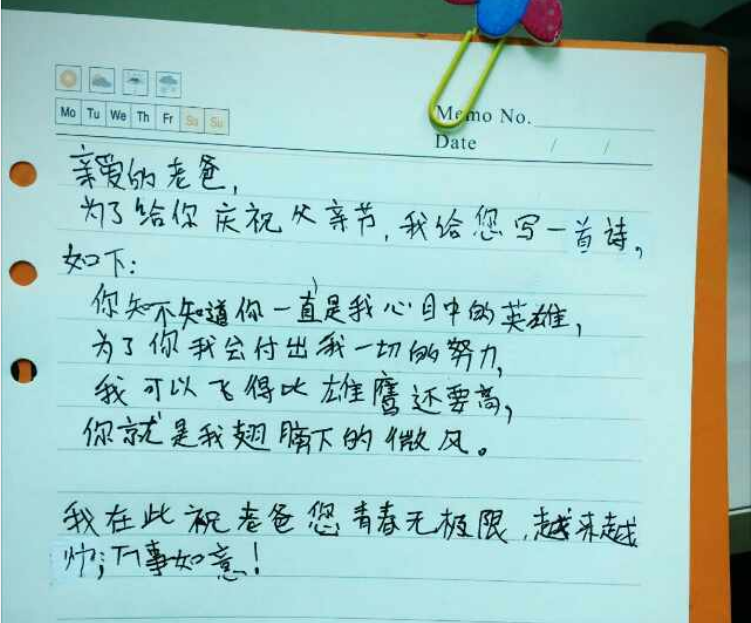 Mo Tu We Th Fr Sa Su
Memo No.
Date / /
亲爱的老爸，
为了给你庆祝父亲节，我给您写一首诗，
如下：
你知不知道你一直是我心目中的英雄，
为了你我会付出我一切的努力，
我可以飞得比雄鹰还要高，
你就是我翅膀下的微风。
我在此祝老爸您青春无极限，越来越
帅；万事如意！